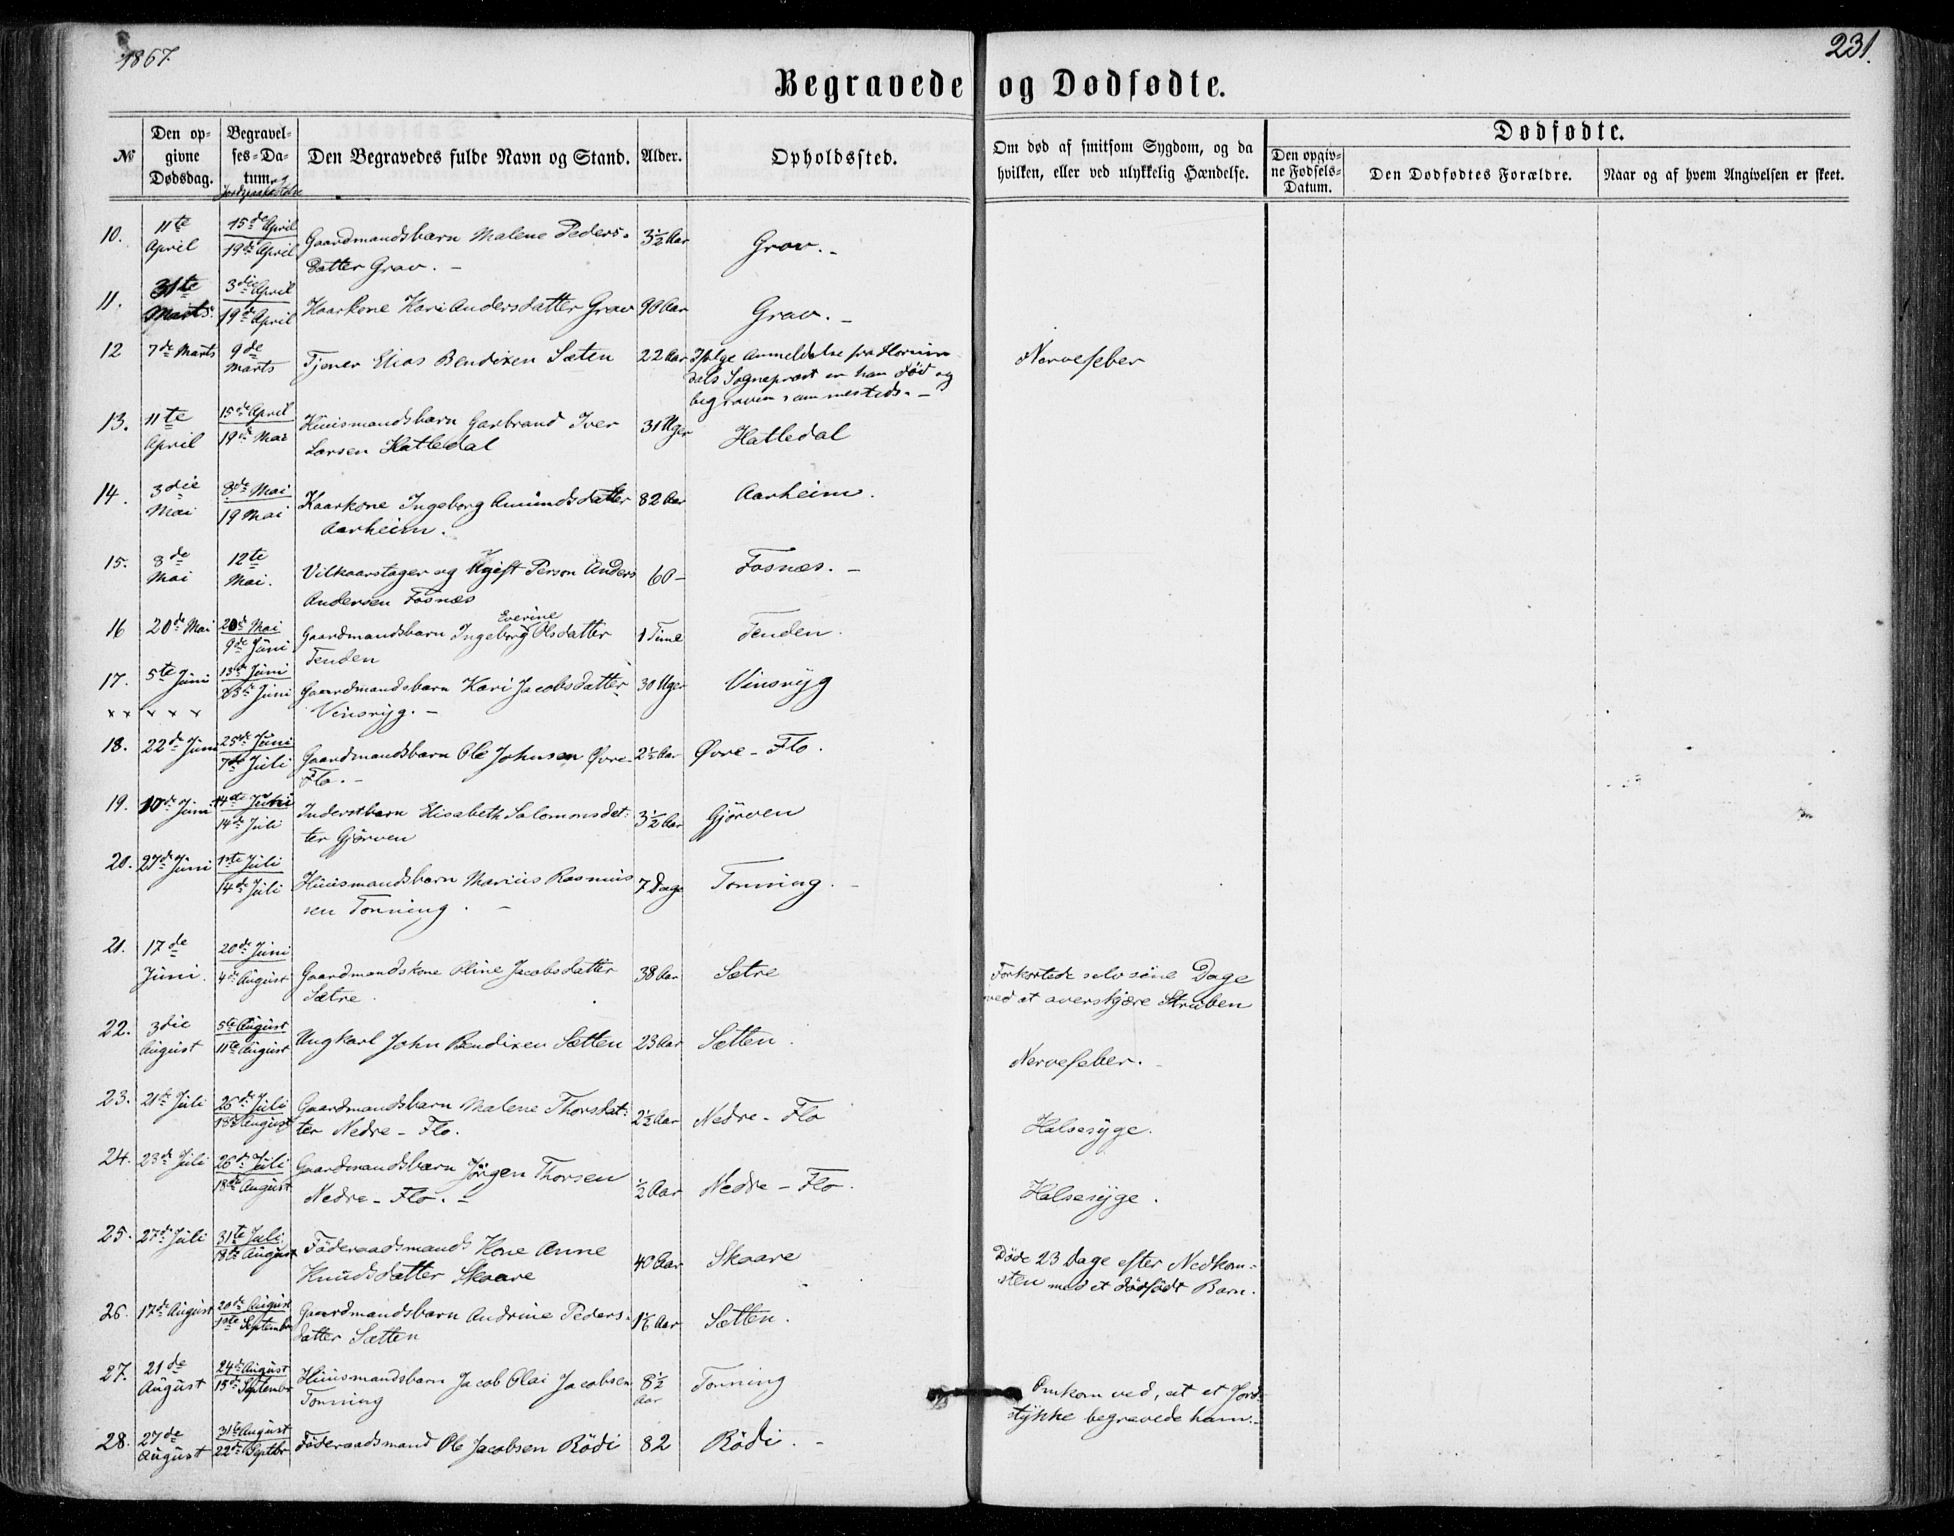 1867.
231.
Begravede og Dødfødte.
№
Den opgivne Dødsdag.
Begravelses-Datum.
Den Begravedes fulde Navn og Stand.
Alder.
Opholdssted.
Om død af smitsom Sygdom, og da hvilken, eller ved ulykkelig Hændelse.
Dødfødte.
Den opgivne Fødsels-Datum.
Den Dødfødtes Forældre.
Naar og af hvem Angivelsen er skeet.
10. 11te April 15de April 19de April Gaardmandsbarn Malene Peders- 3½ Aar Grav.-
datter Grav.-
11. 31te Marts. 3die April 19de April Kaarkone Kari Andersdatter Grav 90 Aar Grav.-
12 7de Marts 9de Marts Tjener Elias Bendixen Sæten 22 Aar Ifølge Anmeldelse fra Hornin- Nervefeber
dals Sognepræst er han død og
begraven sammesteds.-
13. 11te April 15de April 19de Mai Huusmandsbarn Garbrand Iver 31 Uger Hatledal
Larsen Hatledal
14. 3die Mai 8de Mai 19 Mai Kaarkone Ingeborg Amundsdatter 82 Aar Aarheim.
Aarheim.
15. 8de Mai 12te Mai. Vilkaarstager og Ugift Person Anders 60- Fosnæs.-
Andersen Fosnæs
16 20de Mai 20de Mai 9de Juni Gaardmandsbarn Ingeborg Everine Olsdatter 1 Time Tenden.
Tenden
17. 5te Juni 13de Juni 23de Juni Gaardmandsbarn Kari Jacobsdatter 30 Uger Vinsryg
Vinsryg.-
18. 22de Juni 25de Juni 7de Juli Gaardmandsbarn Ole Johnsen Øvre- 2½ Aar Øvre-Flo.
Flo.-
19. 10de Juni 14de Juni 14de Juli Inderstbarn Elisabeth Salomonsdat- 3½ Aar Gjörven
ter Gjörven
20. 27de Juni 1ste Juli 14de Juli Huusmandsbarn Marius Rasmus 7 Dage Tonning.-
sen Tonning.-
21. 17de Juni. 20de Juni 4de August Gaardmandskone Oline Jacobsdatter 38 Aar Sætre Forkortede selv sine Dage
Sætre. ved at overskjære Struben
22. 3die August 5te August 11te August Ungkarl John Bendixen Sætten 23 Aar Sætten. Nervefeber.-
23. 21de Juli 26de Juli 18de August Gaardmandsbarn Malene Thorsdat- 2½ Aar Nedre-Flo Halsesyge.
ter Nedre-Flo.
24. 23de Juli 26de Juli 18de August Gaardmandsbarn Jörgen Thorsen ½ Aar Nedre-Flo. Halsesyge.
Nedre-Flo.-
25. 27de Juli 31te Juli 18te August Föderaadsmands Kone Anne 40 Aar Skaare Döde 23 Dage efter Nedkom-
Knudsdatter Skaare sten med et dödfödt Barn.
26. 17de August 20de August 1ste September Gaardmandsbarn Andrine Peders- Aar Sætten.
datter Sætten
27. 21de August 24de August 15de September Huusmandsbarn Jacob Olai Jacobsen 8½ Aar Tonning Omkom ved, at et Jord-
Tonning stykke begravede ham.-
28. 27de August 31te August 22de Septbr Föderaadsmand Ole Jacobsen Rödi 82 Rödi.-